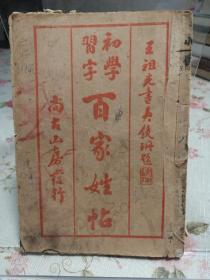 王祖光書吴俊珊題
初學
習字
百家姓帖
尚古山房發行